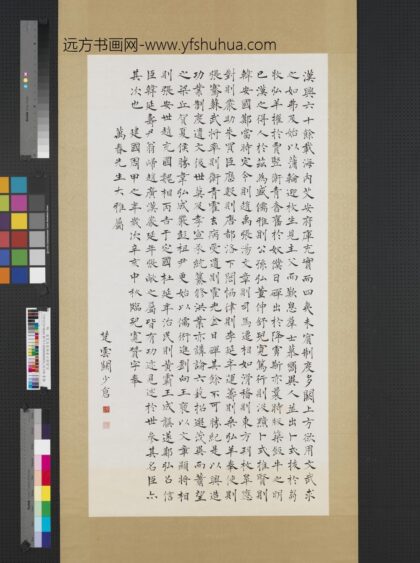 远方书画网-www.yfshuhua.com
漢興六十餘載海內艾安府庫充實而四夷未賓制度多闕上方欲用文武求
之如弗及始以蒲輪迎枚生見主父而歎息群士慕嚮異人並出卜式拔於芻
牧弘羊擢於賈豎衛青奮於奴僕日磾出於降虜斯亦曩時板築飯牛之明
已漢之得人於茲為盛儒雅則公孫弘董仲舒兒寬篤行則汲黯卜式推賢則
韓安國鄭當時定令則趙禹張湯文章則司馬遷相如滑稽則東方朔枚皋應
對則嚴助朱買臣歷數則唐都洛下閎協律則李延年運籌則桑弘羊奉使則
張騫蘇武將率則衛青霍去病受遺則霍光金日磾其餘不可勝紀是以興造
功業制度遺文後世莫及孝宣承統纂修洪業亦講論六藝招選茂異而蕭望
之梁丘賀夏侯勝韋弘成嚴彭祖尹更始以儒術進劉向王褒以文章顯將相
則張安世趙充國魏相丙吉于定國杜延年治民則黃霸王成龔遂鄭弘召信
臣韓延壽尹翁歸趙廣漢嚴延年張敞之屬皆有功迹見述於世參其名臣亦
其次也
建國周甲之年歲次辛亥中秋臨兒寬贊字奉
萬春先生大雅屬
楚雲